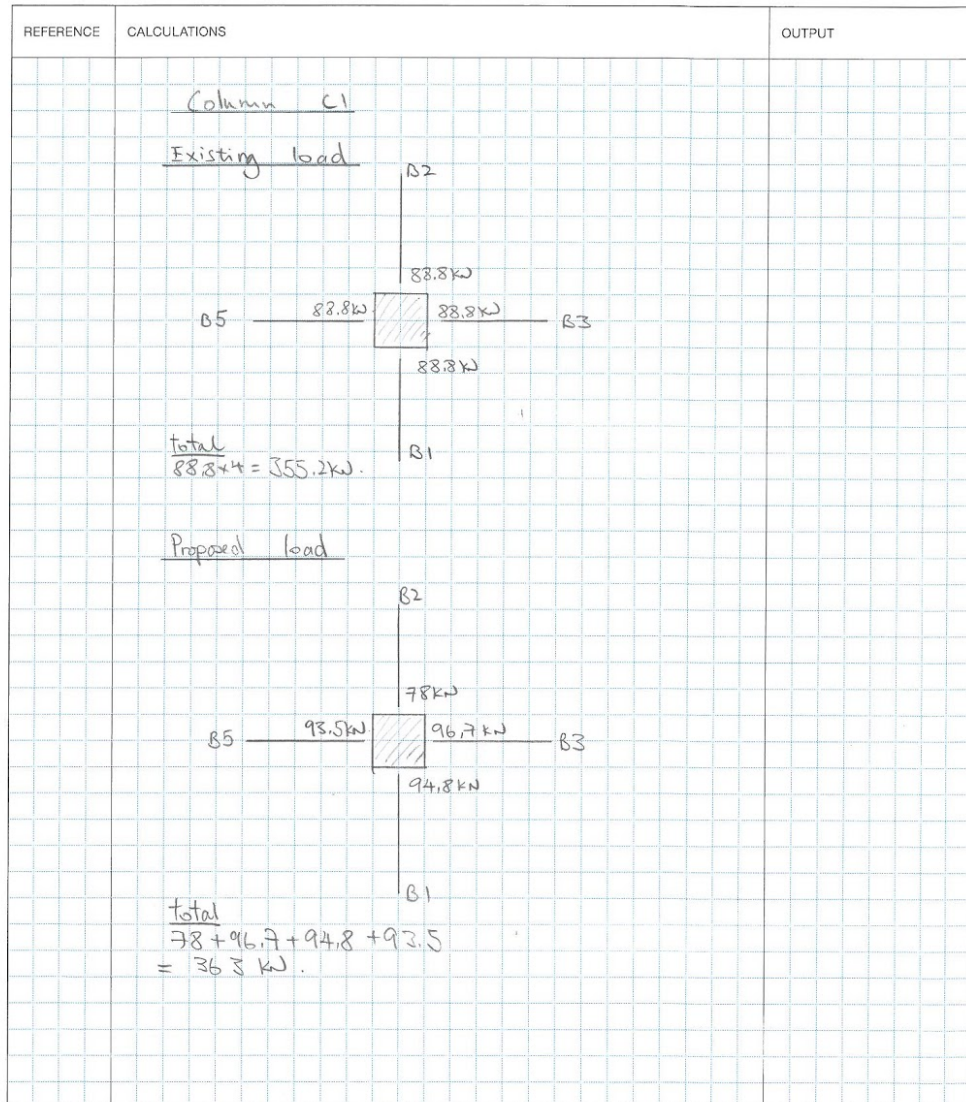 REFERENCE CALCULATIONS OUTPUT
Column C1
Existing load
B2
88.8kN
B5 88.8kN 88.8kN B3
88.8kN
B1
total
88.8×4 = 355.2kN.
Proposed load
B2
78kN
B5 93.5kN 96.7kN B3
94.8kN
B1
total
78+96.7+94.8+93.5
= 363 kN.